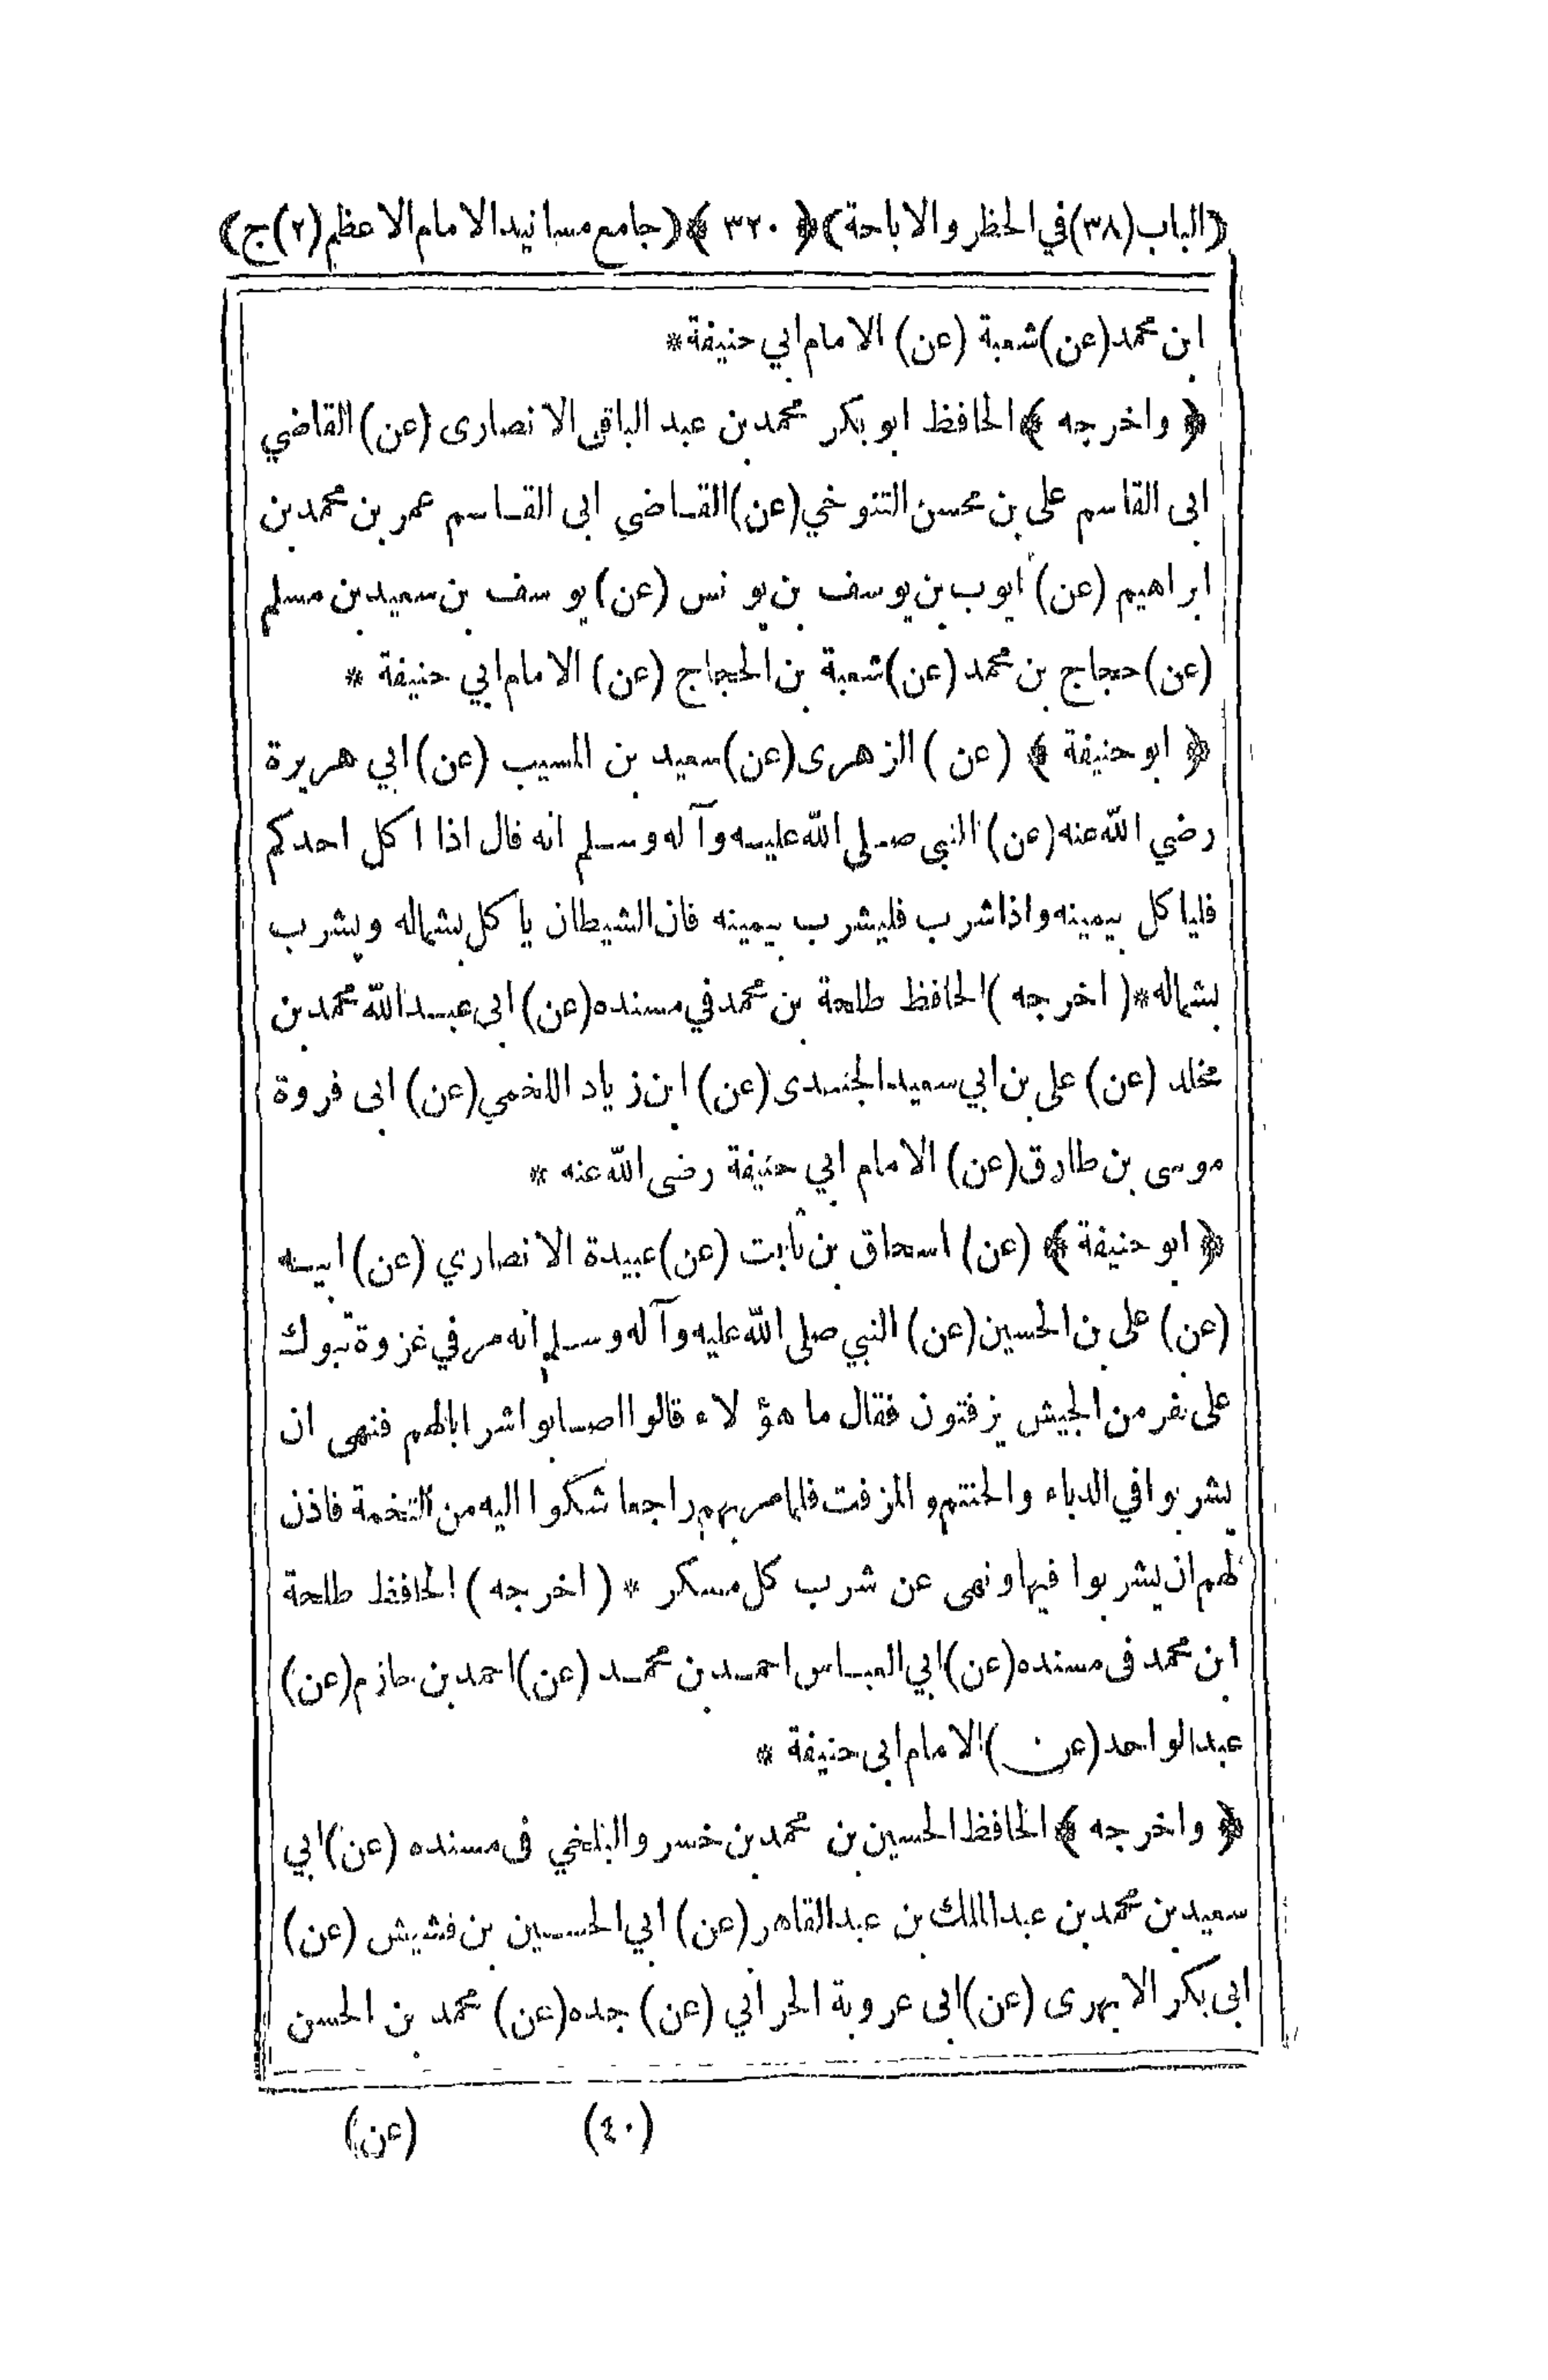 ﴿الباب(٣٨)في الحظر والاباحة﴾﴿٣٢٠﴾﴿جامع مسانيد الامام الاعظم(٢)ج﴾
ابن محمد(عن)شعبة (عن) الامام ابي حنيفة*
﴿ واخرجه ﴾ الحافظ ابو بكر محمد بن عبد الباقى الانصارى (عن) القاضي
ابى القاسم على بن محسن التنوخي(عن)القاضي ابى القاسم عمر بن محمد بن
ابراهيم (عن) ايوب بن يوسف بن يونس (عن) يوسف بن سعيد بن مسلم
(عن) حجاج بن محمد (عن)شعبة بن الحجاج (عن) الامام ابي حنيفة *
﴿ ابو حنيفة ﴾ (عن) الزهرى(عن)سعيد بن المسيب (عن) ابي هريرة
رضي الله عنه(عن)النبي صلى الله عليه وآله وسلم انه قال اذا اكل احدكم
فلياكل بيمينه واذا شرب فليشرب بيمينه فان الشيطان ياكل بشماله ويشرب
بشماله*( اخرجه )الحافظ طلحة بن محمد في مسنده(عن) ابى عبد الله محمد بن
مخلد (عن) على بن ابي سعيد الجندى(عن) ابن زياد اللخمي(عن) ابى فروة
موسى بن طارق(عن) الامام ابي حنيفة رضى الله عنه *
﴿ ابو حنيفة ﴾ (عن) اسحاق بن ثابت (عن)عبيدة الانصاري (عن) ابيه
(عن) على بن الحسين(عن) النبي صلى الله عليه وآله وسلم انه مر في غزوة تبوك
على نفر من الجيش يزفتون فقال ما هؤلاء قالوا اصابوا شرابا لهم فنهى ان
يشربوا في الدباء والحنتم والمزفت فلما مر بهم راجعا شكوا اليه من التخمة فاذن
لهم ان يشربوا فيها ونهى عن شرب كل مسكر * ( اخرجه ) الحافظ طلحة
ابن محمد فى مسنده(عن)ابي العباس احمد بن محمد (عن)احمد بن حازم(عن)
عبد الواحد(عن)الامام ابى حنيفة *
﴿ واخرجه ﴾ الحافظ الحسين بن محمد بن خسرو البلخي فى مسنده (عن)ابي
سعيد بن محمد بن عبد الملك بن عبد القاهر(عن) ابي الحسين بن قشيش (عن)
ابى بكر الابهرى (عن)ابى عروبة الحراني (عن) جده(عن) محمد بن الحسن
(٤٠) (عن)